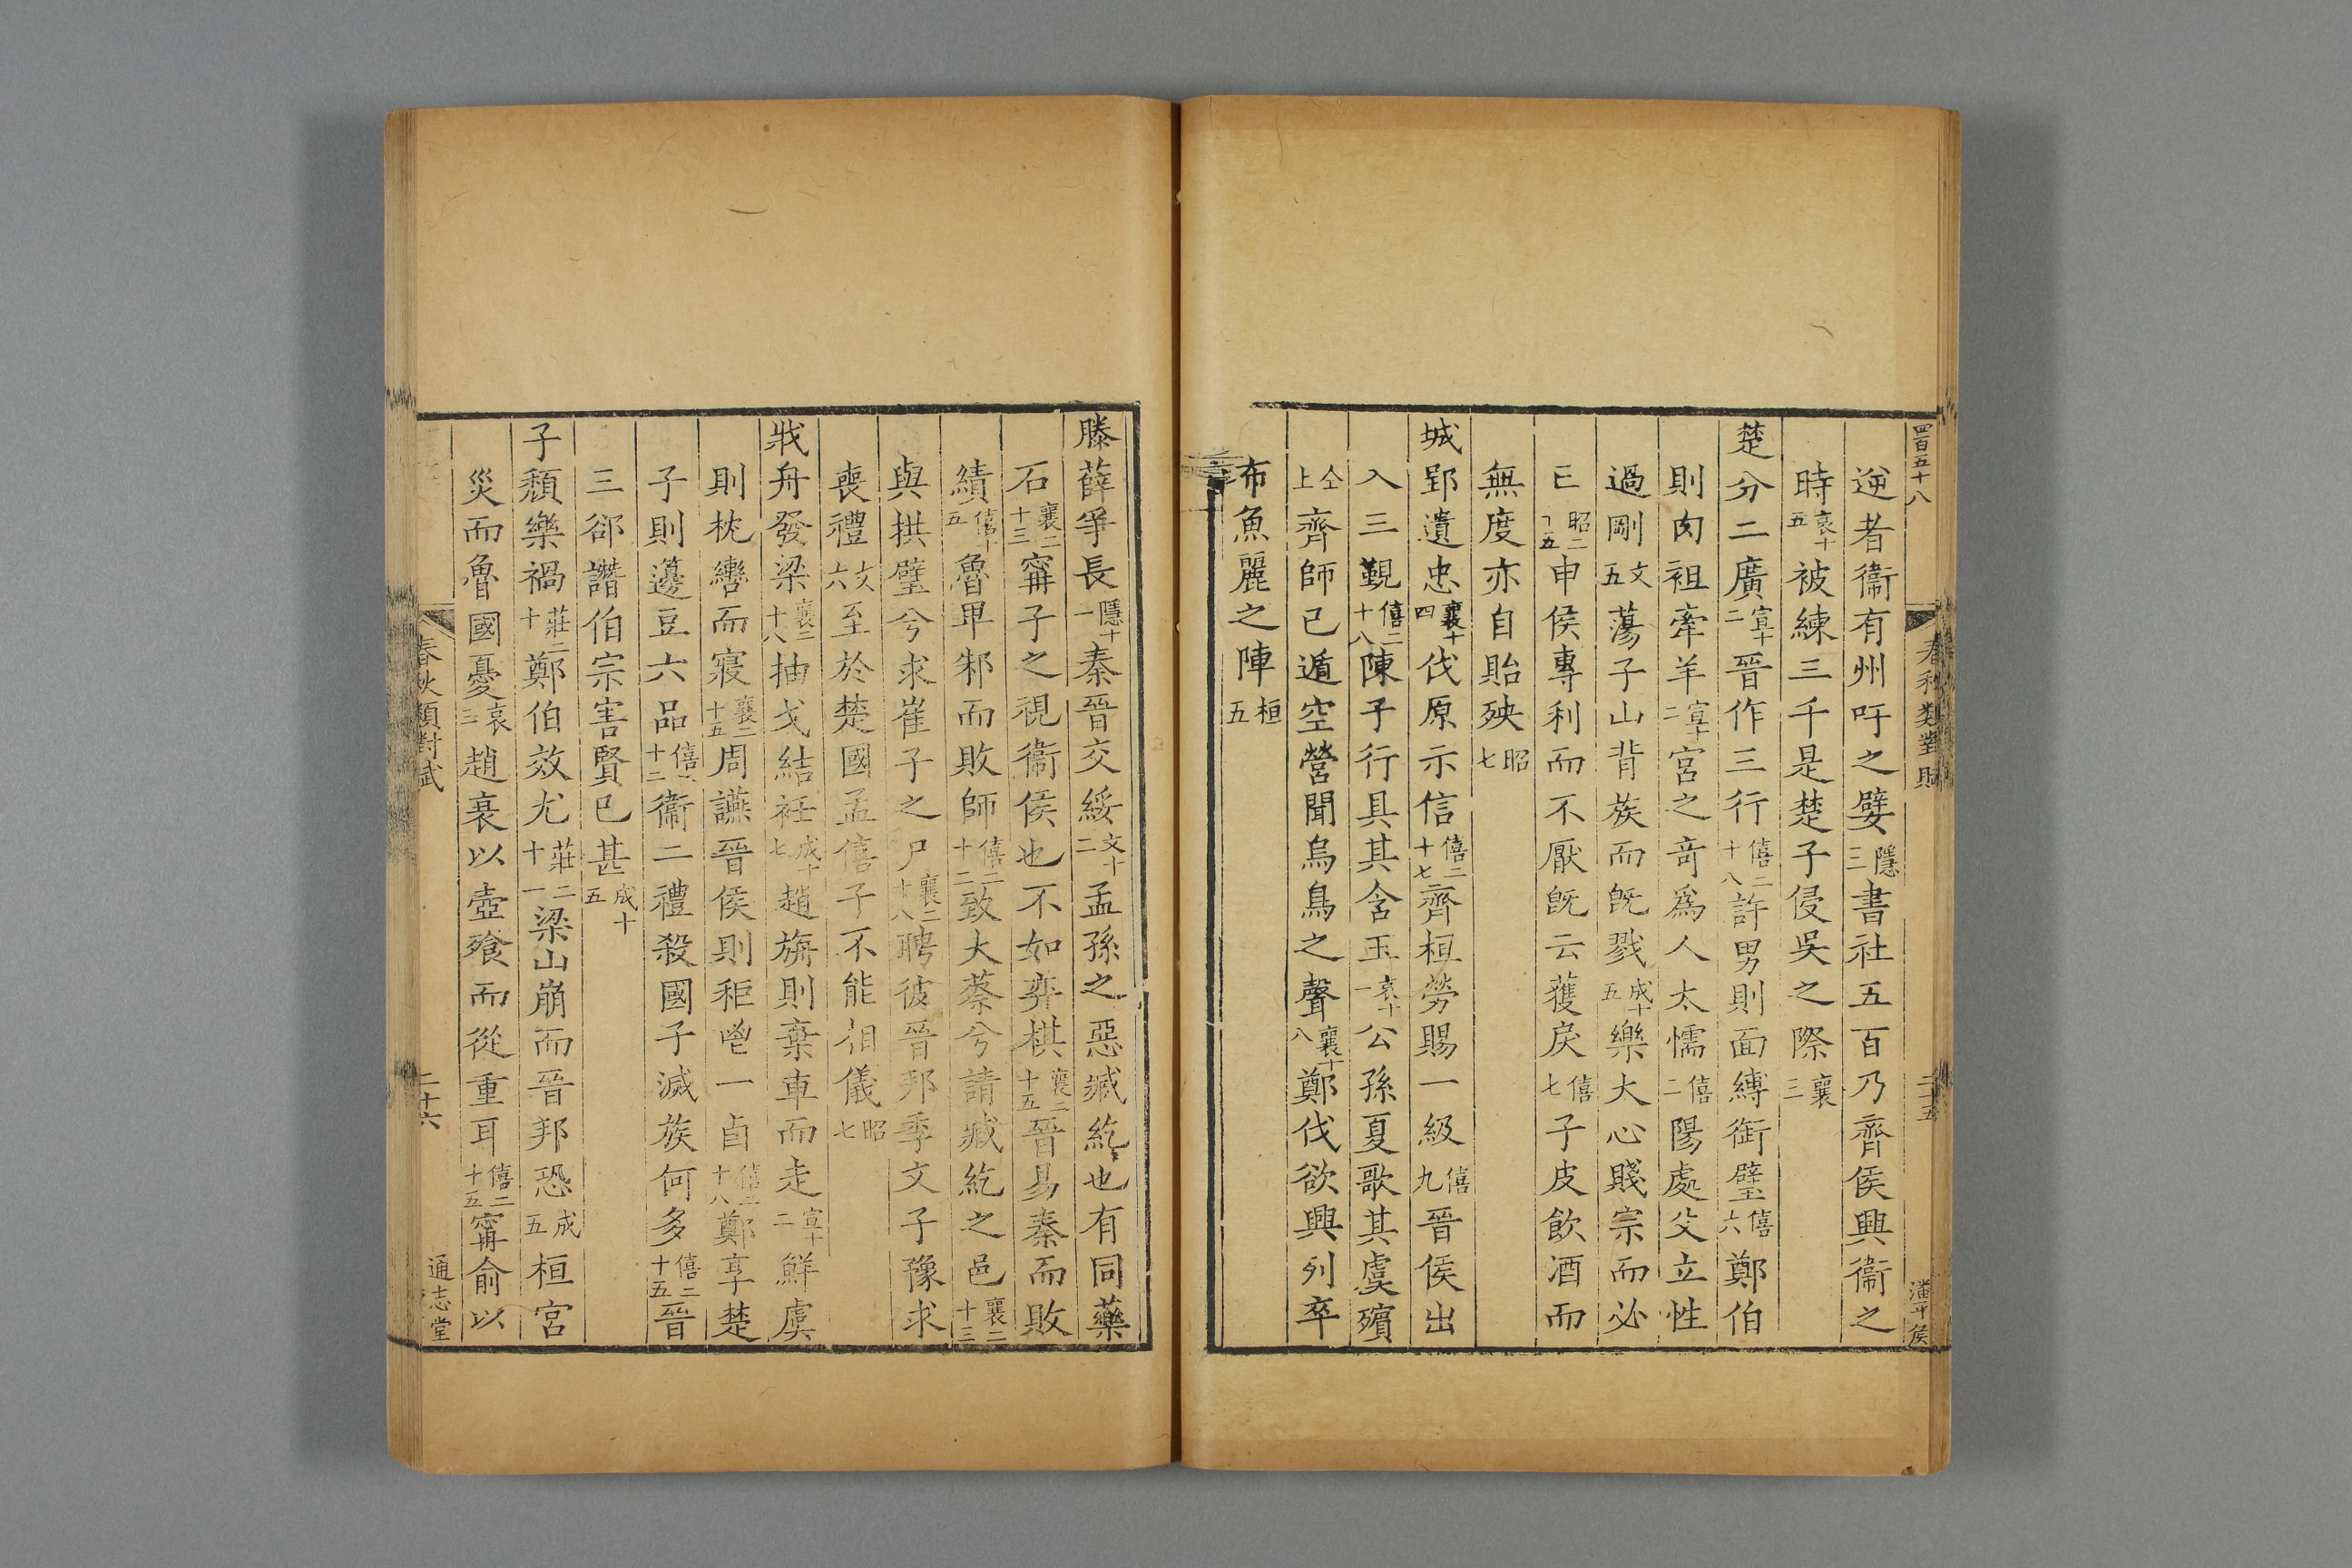 四百五十八 春秋類對賦 二十五
逆者衞有州吁之嬖隱三書社五百乃齊侯興衞之
時哀十五被練三千是楚子侵吳之際襄三
楚分二廣宣十二晉作三行僖二十八許男則面縛銜璧僖六鄭伯
則肉袒牽羊宣十二宮之竒爲人太懦僖二陽處父立性
過剛文五蕩子山背族而旣戮成十五樂大心賤宗而必
亡昭二十五申侯專利而不厭旣云獲戾僖七子皮飲酒而
無度亦自貽殃昭七
城郢遺忠襄十四伐原示信僖二十七齊桓勞賜一級僖九晉侯出
入三覲僖二十八陳子行具其含玉哀十一公孫夏歌其虞殯
仝上齊師已遁空營聞烏鳥之聲襄十八鄭伐欲興列卒
布魚麗之陣桓五
滕薛爭長隱十一秦晉交綏文十二孟孫之惡臧紇也有同藥
石襄二十三甯子之視衞侯也不如弈棋襄二十五晉易秦而敗
績僖十五魯卑邾而敗師僖二十二致大蔡兮請臧紇之邑襄二十三
與拱璧兮求崔子之尸襄二十八聘彼晉邦季文子豫求
喪禮文六至於楚國孟僖子不能相儀昭七
戕舟發梁襄二十八抽戈結衽成十七趙旃則棄車而走宣十二鮮虞
則枕轡而寢襄二十五周讌晉侯則秬鬯一卣僖二十八鄭享楚
子則籩豆六品僖二十二衞二禮殺國子滅族何多僖二十五晉
三郤譖伯宗害賢已甚成十五
子頽樂禍莊二十鄭伯效尤莊二十一梁山崩而晉邦恐成五桓宮
災而魯國憂哀三趙衰以壺飱而從重耳僖二十五甯俞以
春秋類對賦 二十六 通志堂